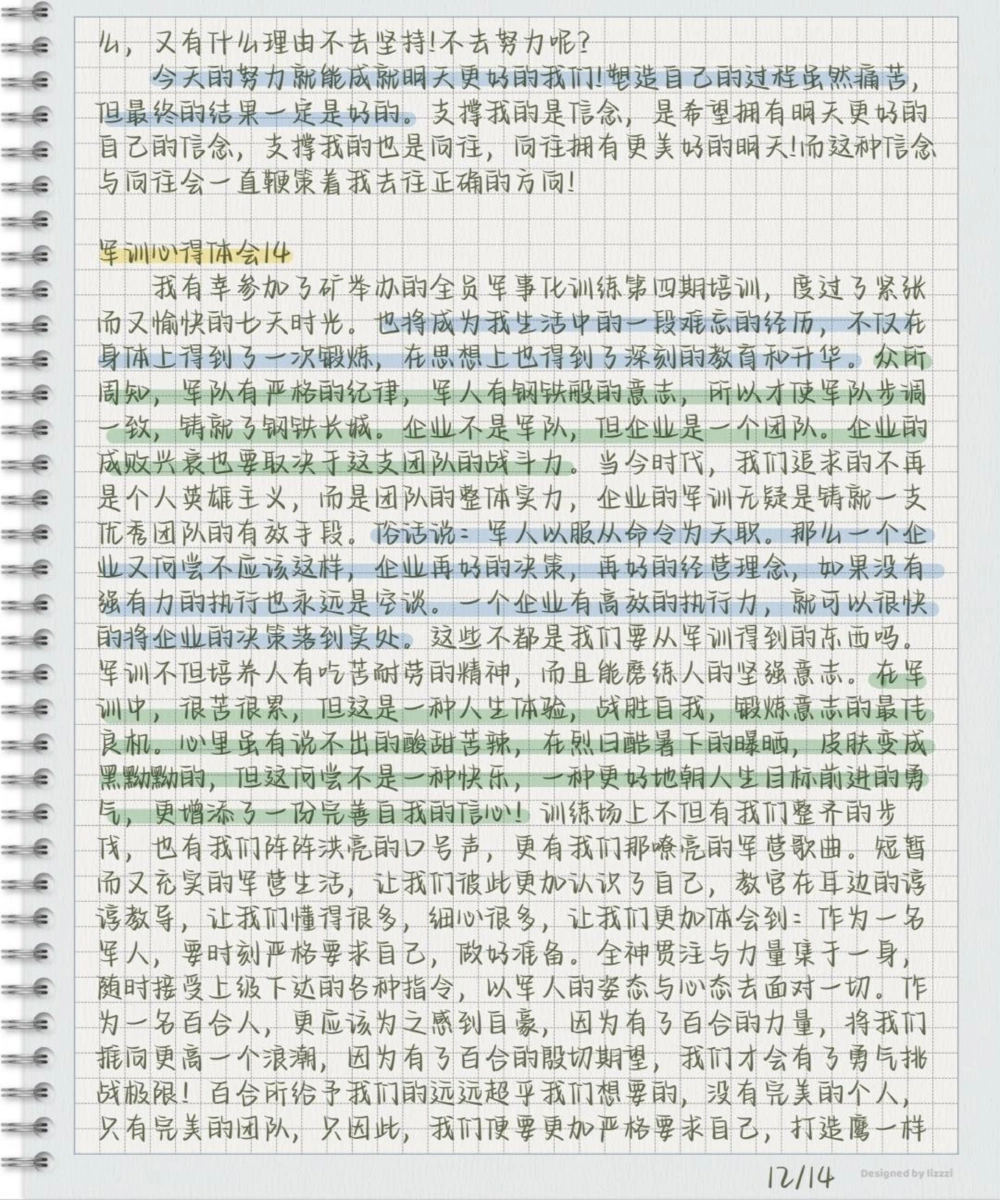 么，又有什么理由不去坚持！不去努力呢？
今天的努力就能成就明天更好的我们！塑造自己的过程虽然痛苦，
但最终的结果一定是好的。支撑我的是信念，是希望拥有明天更好的
自己的信念，支撑我的也是向往，向往拥有更美好的明天！而这种信念
与向往会一直鞭策着我去往正确的方向！
军训心得体会14
我有幸参加了矿举办的全员军事化训练第四期培训，度过了紧张
而又愉快的七天时光。也将成为我生活中的一段难忘的经历，不仅在
身体上得到了一次锻炼，在思想上也得到了深刻的教育和升华。众所
周知，军队有严格的纪律，军人有钢铁般的意志，所以才使军队步调
一致，铸就了钢铁长城。企业不是军队，但企业是一个团队。企业的
成败兴衰也要取决于这支团队的战斗力。当今时代，我们追求的不再
是个人英雄主义，而是团队的整体实力，企业的军训无疑是铸就一支
优秀团队的有效手段。俗话说：军人以服从命令为天职。那么一个企
业又何尝不应该这样，企业再好的决策，再好的经营理念，如果没有
强有力的执行也永远是空谈。一个企业有高效的执行力，就可以很快
的将企业的决策落到实处。这些不都是我们要从军训得到的东西吗。
军训不但培养人有吃苦耐劳的精神，而且能磨练人的坚强意志。在军
训中，很苦很累，但这是一种人生体验，战胜自我，锻炼意志的最佳
良机。心里虽有说不出的酸甜苦辣，在烈日酷暑下的曝晒，皮肤变成
黑黝黝的，但这何尝不是一种快乐，一种更好地朝人生目标前进的勇
气，更增添了一份完善自我的信心！训练场上不但有我们整齐的步
伐，也有我们阵阵洪亮的口号声，更有我们那嘹亮的军营歌曲。短暂
而又充实的军营生活，让我们彼此更加认识了自己，教官在耳边的谆
谆教导，让我们懂得很多，细心很多，让我们更加体会到：作为一名
军人，要时刻严格要求自己，做好准备。全神贯注与力量集于一身，
随时接受上级下达的各种指令，以军人的姿态与心态去面对一切。作
为一名百合人，更应该为之感到自豪，因为有了百合的力量，将我们
推向更高一个浪潮，因为有了百合的殷切期望，我们才会有了勇气挑
战极限！百合所给予我们的远远超乎我们想要的，没有完美的个人，
只有完美的团队，只因此，我们便要更加严格要求自己，打造鹰一样
12/14
Designed by lizzzi